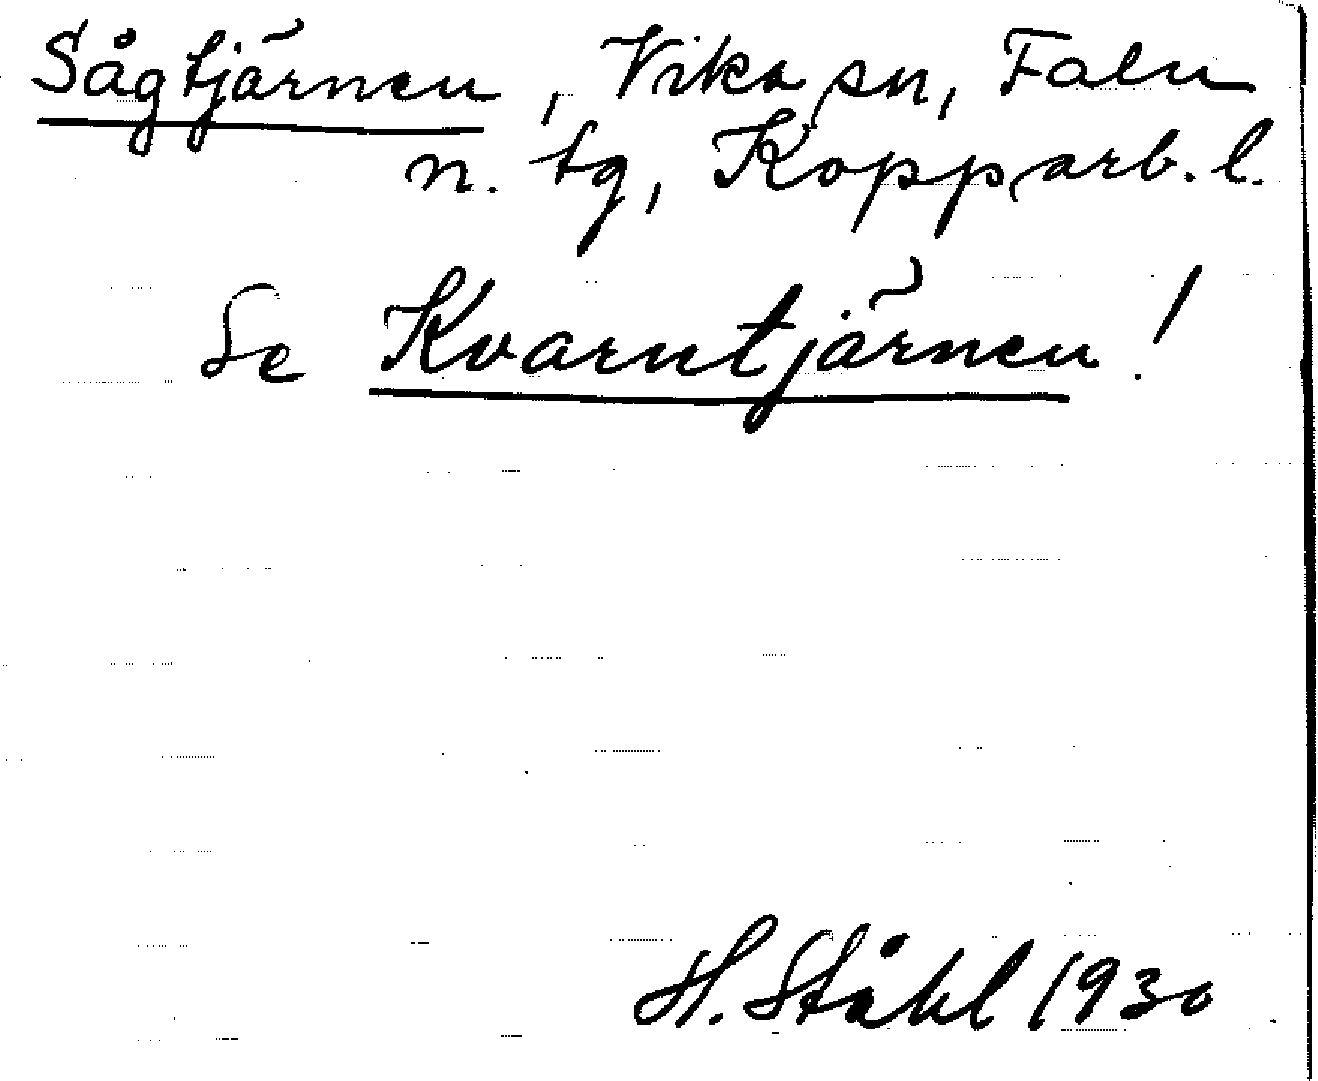 Sågtjärnen, Vika sn, Falu
n. tg, Kopparb. l.
Se Kvarntjärnen!
H. Ståhl 1930